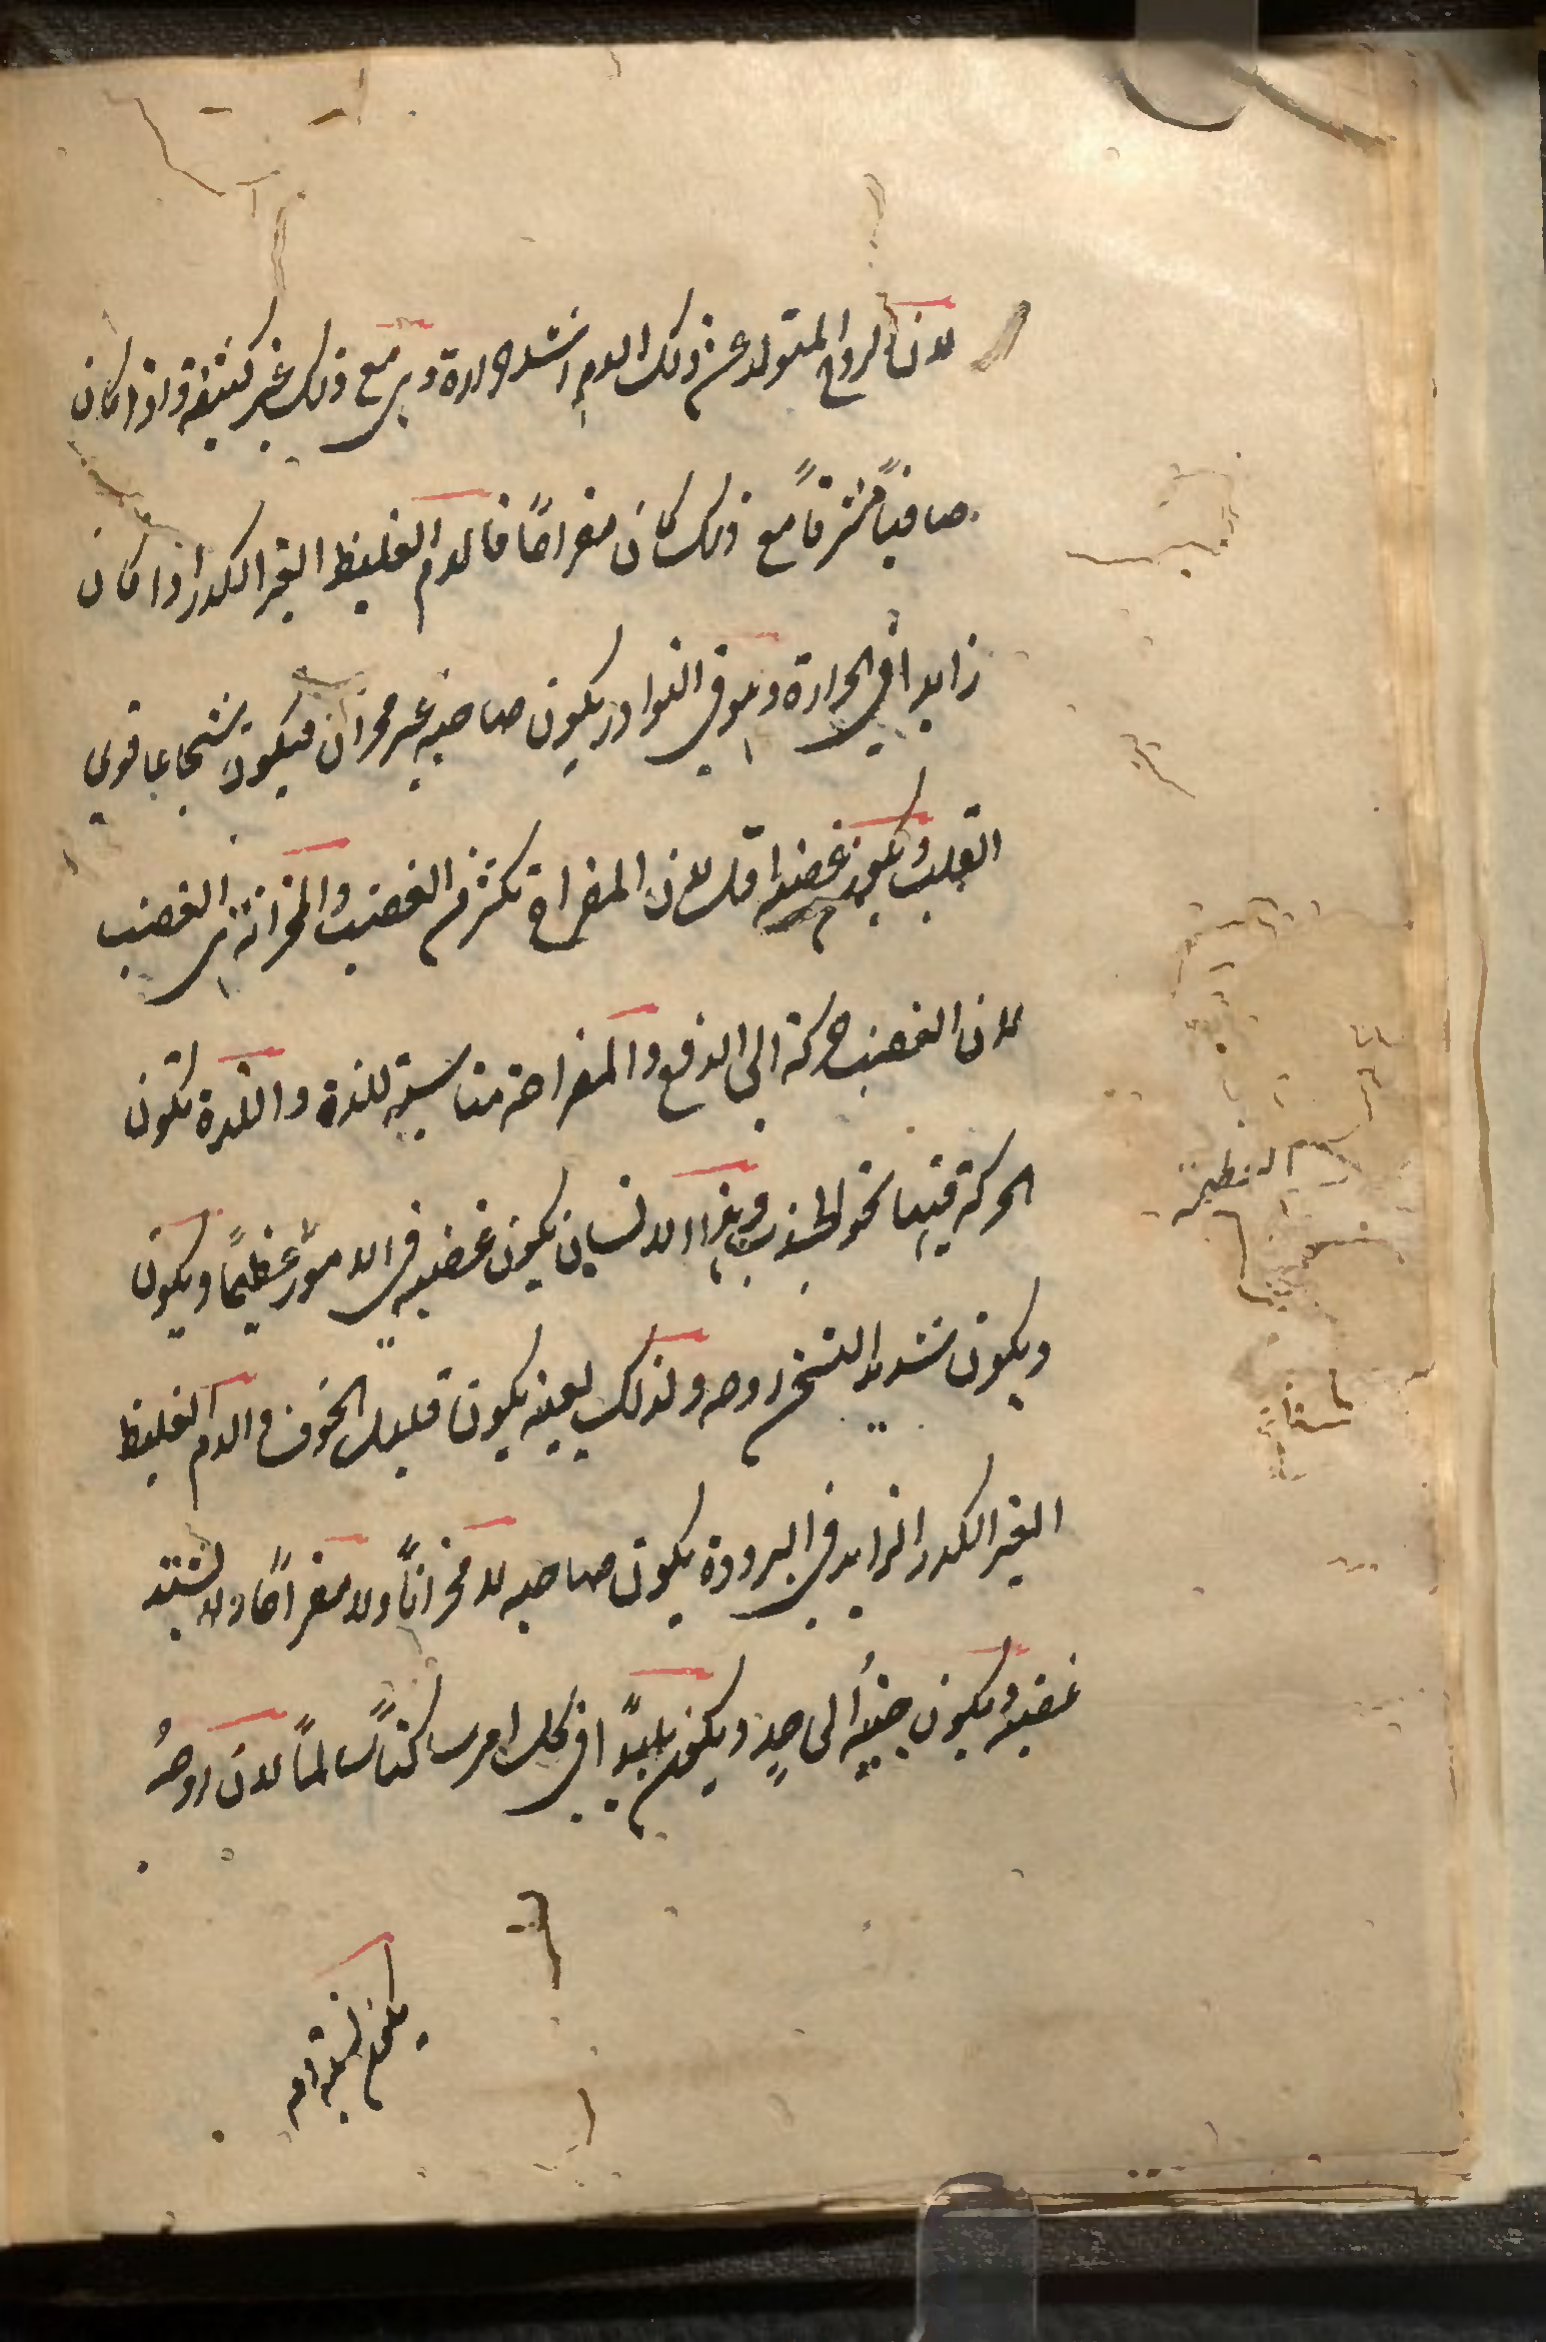 لان الروح المتولد عن ذلك الدم اشد حرارة وهي مع ذلك غير كثيفة واذا كان
صافياً مشرقاً مع ذلك كان مفراحاً فالدم الغليظ الغير الكدر اذا كان
زايداً في الحرارة وهو في النوادر يكون صاحبه غير محزان فيكون شجاعا قوي
القلب ويكون غضبه اقل لان المفراح تكثر فيه الغضب والمحزانة الغضب
لان الغضب حركة الى الدفع والمفراحة مناسبة للذة واللذة تكون
الحركة فيها نحو الجذب وهذا الانسان يكون غضبه في الامور عظيماً ويكون
ويكون شديد التسخن روحه ولذلك بعينه يكون قليل الخوف والدم الغليظ
الغير الكدر الزايد في البرودة يكون صاحبه لا محزاناً ولا مفراحاً ولا يشتد
غضبه ويكون جبنه الى حد ويكون بليداً في كل امر ساكناً سالماً لان روحهُ
يكون شبيه دم